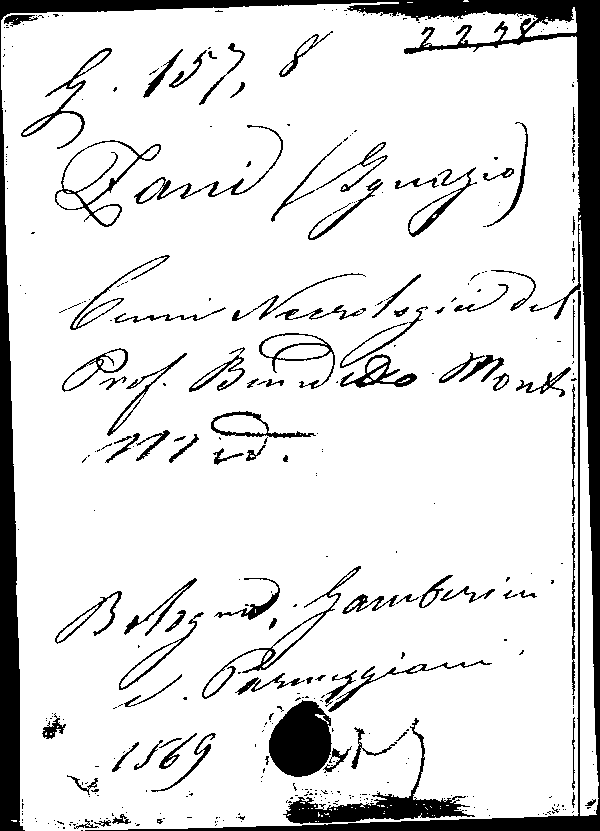 22,78
G. 157, 8
Zani (Ignazio)
Cenni Necrologici del
Prof. Benedetto Monti
Med.
Bologna, Gamberini
e. Parmeggiani
1869